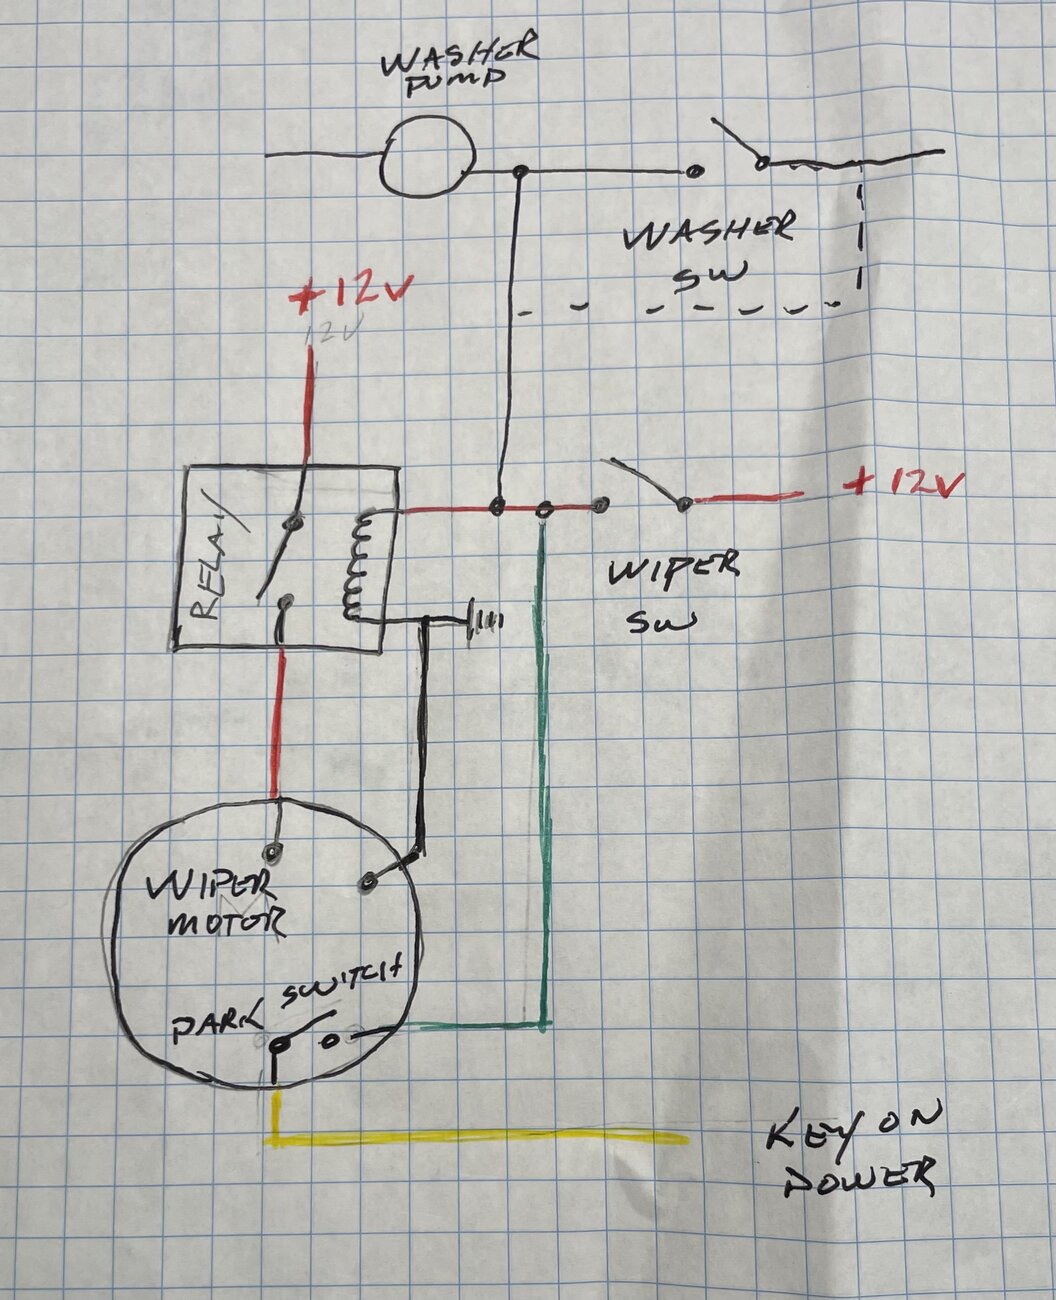 WASHER
PUMP
WASHER
SW
+12V
12V
RELAY
+12V
WIPER
SW
WIPER
MOTOR
PARK SWITCH
KEY ON
POWER